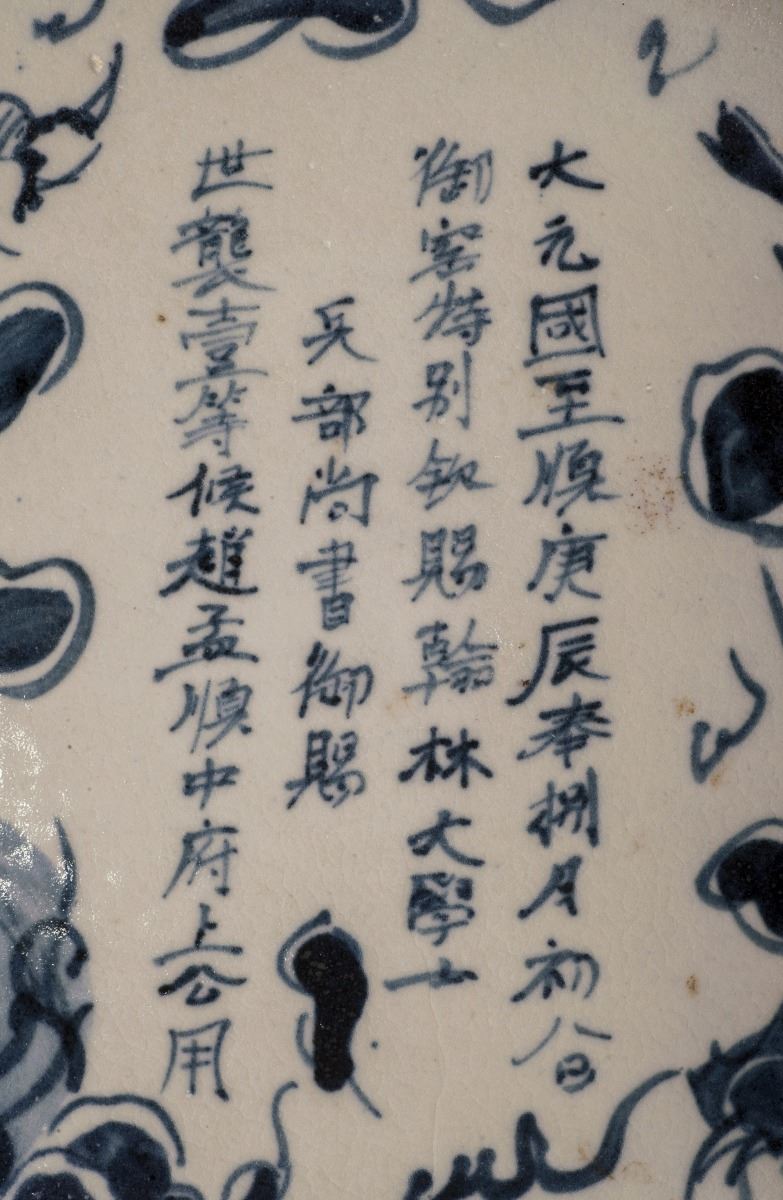 大元國至順庚辰奉捌月初八日
御窑特别欽賜翰林大學士
兵部尚書御賜
世襲壹等候趙孟順中府上公用